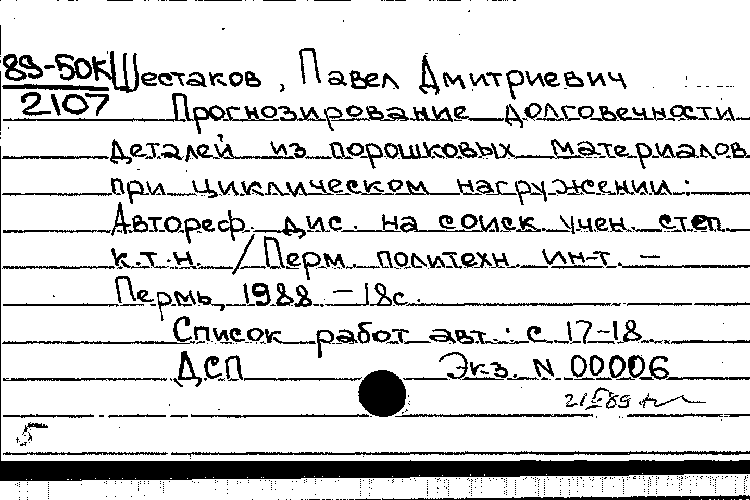 89-50К Шестаков, Павел Дмитриевич
2107 Прогнозирование долговечности
деталей из порошковых материалов
при циклическом нагружении:
Автореф. дис. на соиск. учен. степ.
к.т.н. / Перм. политехн. ин-т. –
Пермь, 1988. – 18с.
Список работ авт.: с 17-18
ДСП Экз. N 00006
5